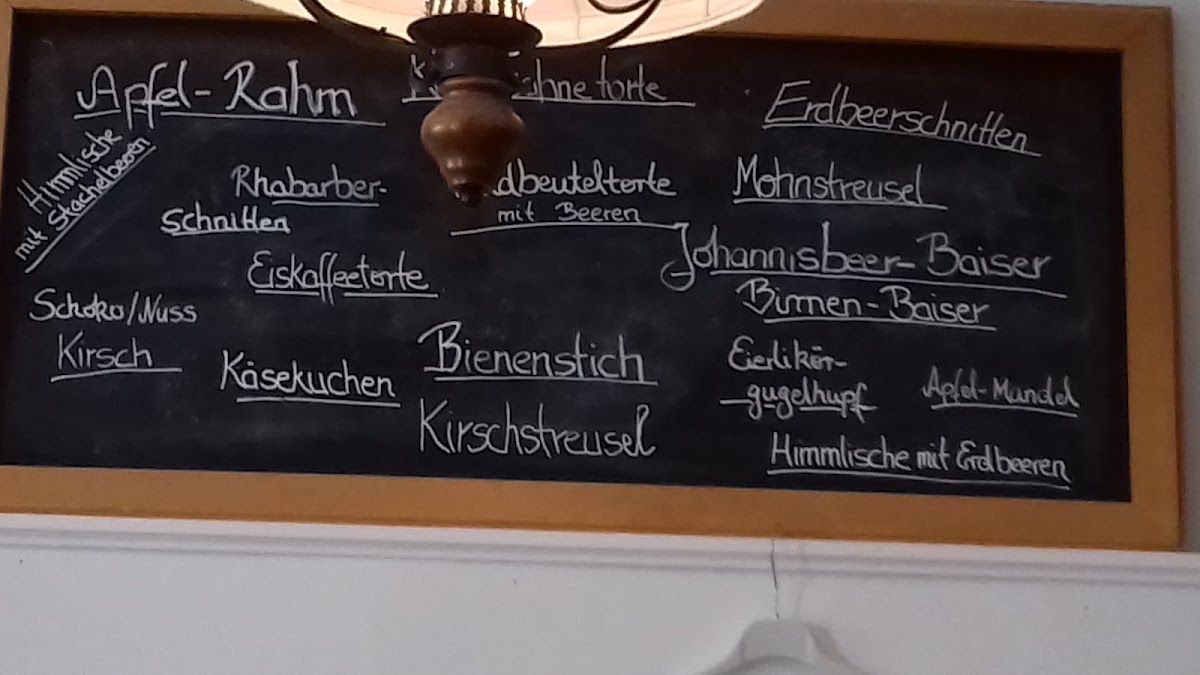 Apfel-Rahm
Himmlische
mit Stachelbeeren
Rhabarber-
schnitten
Eiskaffeetorte
Schoko/Nuss
Kirsch
Käsekuchen
torte
mit Beeren
Bienenstich
Kirschstreusel
Erdbeerschnitten
Mohnstreusel
Johannisbeer-Baiser
Birnen-Baiser
Eierlikör-
gugelhupf
Apfel-Mandel
Himmlische mit Erdbeeren